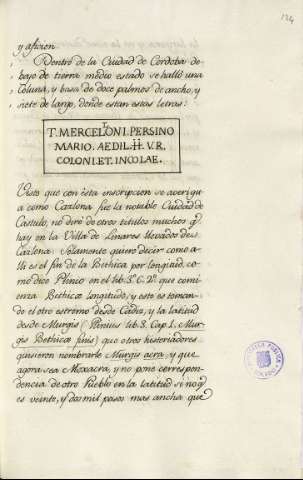 124
y aficion
Dentro de la Ciudad de Cordoba de-
bajo de tierra medio estado se halló una
Coluna, y basa de doce palmos de ancho, y
siete de largo, donde estan estas letras:
T. MERCELONI PERSINO
MARIO. AEDIL. II. V.R.
COLONI. ET. INCOLAE.
Visto que con ésta inscripcion se averigu-
a como Cazlona fue la notable Ciudad de
Castulo, no diré de otros titulos muchos q̃
hay en la Villa de Linares llevados de
Cazlona: Solamente quiero decir como a-
lli es el fin de la Bethica por longitud, co-
mo dice Plinio en el lib. 3º C. 2º que comi-
enza Bethicæ longitudo, y este es toman-
do el otro estremo desde Cadiz, y la latitud
desde Murgis (Plinius lib. 3. Cap. 1. Mur-
gis Bethicæ finis) que otros historiadores
quisieron nombrarle Murgis acra, y que
agora sea Moxacra, y no pone correspon-
dencia de otro Pueblo en la latitud si no q̃
es veinte, y dos mil pasos mas ancha que